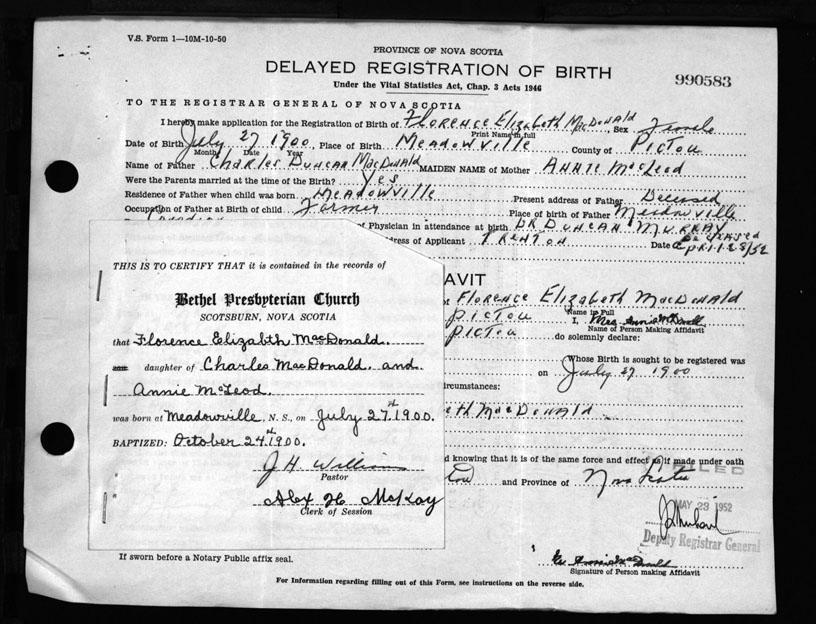 V.S. Form 1—10M-10-50
PROVINCE OF NOVA SCOTIA
DELAYED REGISTRATION OF BIRTH
990583
Under the Vital Statistics Act, Chap. 3 Acts 1946
TO THE REGISTRAR GENERAL OF NOVA SCOTIA
I hereby make application for the Registration of Birth of Florence Elizabeth MacDonald Sex Female
Print Name in full
Date of Birth July 27 1900, Place of Birth Meadowville County of Pictou
Month Date Year
Name of Father Charles Duncan MacDonald MAIDEN NAME of Mother Annie McLeod
Were the Parents married at the time of the Birth? Yes
Residence of Father when child was born Meadowville Present address of Father Deceased
Occupation of Father at Birth of child Farmer Place of birth of Father Meadowville
f Physician in attendance at birth Dr Duncan Murray
Deceased
dress of Applicant Trenton Date April 28/52
THIS IS TO CERTIFY THAT it is contained in the records of
Bethel Presbyterian Church
SCOTSBURN, NOVA SCOTIA
that Florence Elizabth MacDonald.
daughter of Charles MacDonald and
Annie McLeod.
was born at Meadowville, N. S., on July 27th 1900.
BAPTIZED: October 24th 1900.
J H. William
Pastor
Alex H. McKay
Clerk of Session
AVIT
Florence Elizabeth MacDonald
Name in Full
Pictou I, Mrs. Annie McDonald
Name of Person Making Affidavit
Pictou do solemnly declare:
Whose Birth is sought to be registered was
on July 27 1900
ircumstances:
eth MacDonald
d knowing that it is of the same force and effect as if made under oath
tou and Province of Nova Scotia
FILED
MAY 23 1952
Deputy Registrar General
Annie McDonald
Signature of Person making Affidavit
If sworn before a Notary Public affix seal.
For Information regarding filling out of this Form, see instructions on the reverse side.